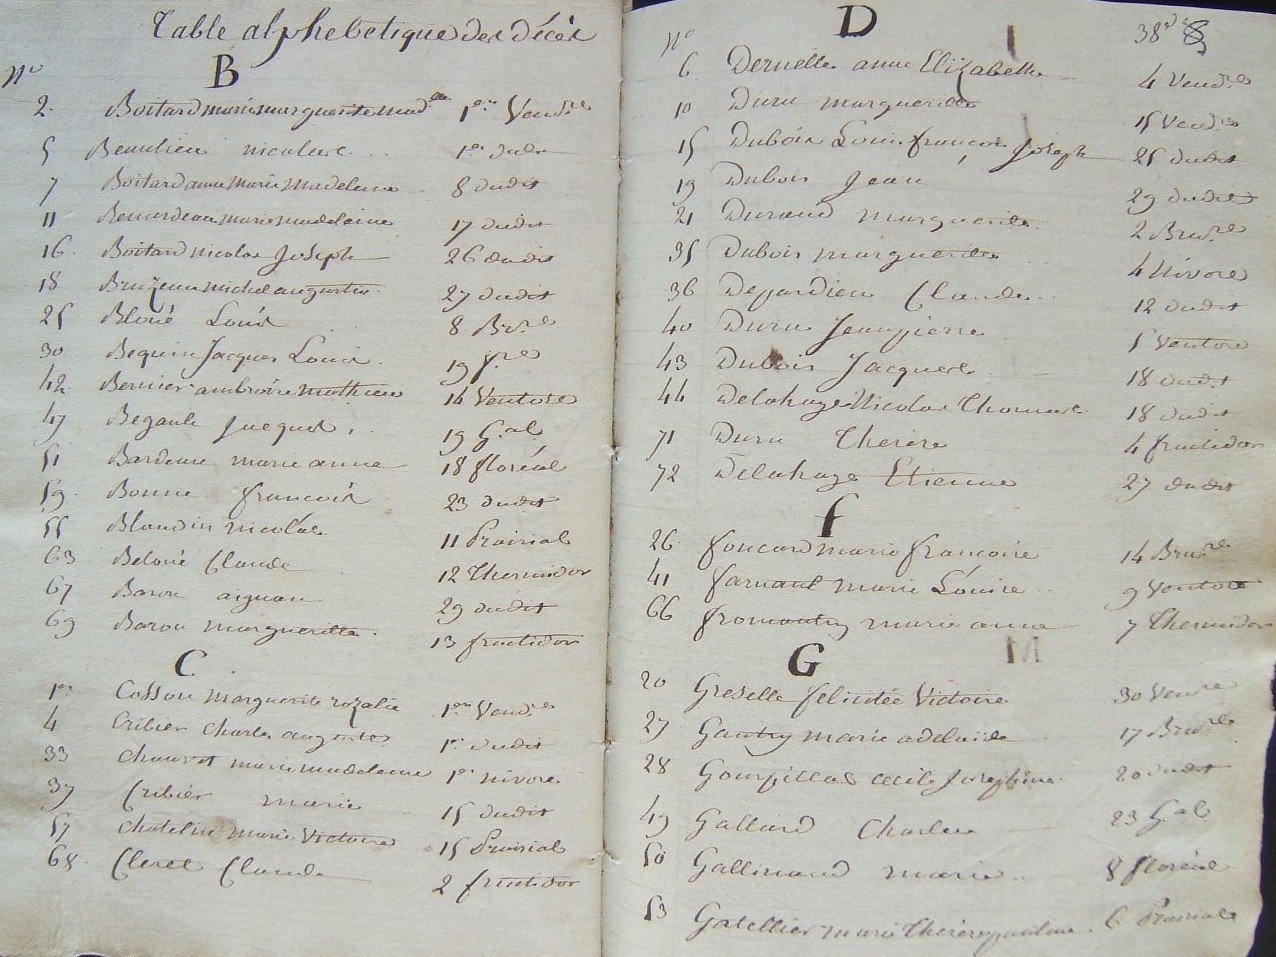 Table alphebetique des décès
No
B
2. Boitard marie marguerite mad.ne 1er Vend.re
5 Beaulieu nicolas 1er dudt
7 Boitard anne Marie Madelaine 8 dudit
11 Benardeau marie madelaine 17 dudit
16. Boitard nicolas Joseph 26 dudit
18 Bruzeau michel augustin 27 dudit
25 Bloué Louis 8 Br.re
30 Bequin Jacques Louis 19 f.re
42. Bernier ambroise mathieu 14 Ventose
47 Begault Jacques 19 G.al
51 Bardeau marie anne 18 floréal
59. Bonne francois 23 dudit
55 Blondin nicolas 11 Prairial
63 Beloué Claude 12 Thermidor
67 Barou aignan 29 dudit
69 Barou marguerite 13 fructidor
C
1er Cosson marguerite rozalie 1er Vend.re
4 Cribier Charles auguste 1er dudit
33 Chauvet marie madelaine 1er nivose
37 Cribier marie 15 dudit
57 Chateline marie Victoire 15 Prairial
68. Cleret Claude 2 fructidor
No
D
38
6. Dernelle anne Elizabeth 4 Vend.re
10 Duru marguerite 15 Vend.re
15 Dubois Louis françois Joseph 25 dudit
19 Dubois Jean 29 dudit
21 Durand marguerite 2 Bru.re
35 Dubois marguerite 4 Nivose
36 Depardieu Claude 12 dudit
40 Duru Jean pierre 5 Ventose
43 Dubois Jacques 18 dudit
44 Delahaye Nicolas Thomas 18 dudit
71 Duru Therese 4 fructidor
72 Delahaye Etienne 27 dudit
f
26. foucard marie francoise 14 Bru.re
41 farnault marie Louise 9 Ventose
66 fromontry marie anne 7 Thermidor
G
20 Greselle felicitée Victoire 30 Vend.re
27 Gautry marie adelaïde 17 Bru.re
28 Gourpillas cecile Josephine 20 dudit
49 Galliard Charles 23 G.al
50 Gallinand marie 8 floréal
53 Gatellier marie Therese pauline 6 Prairial